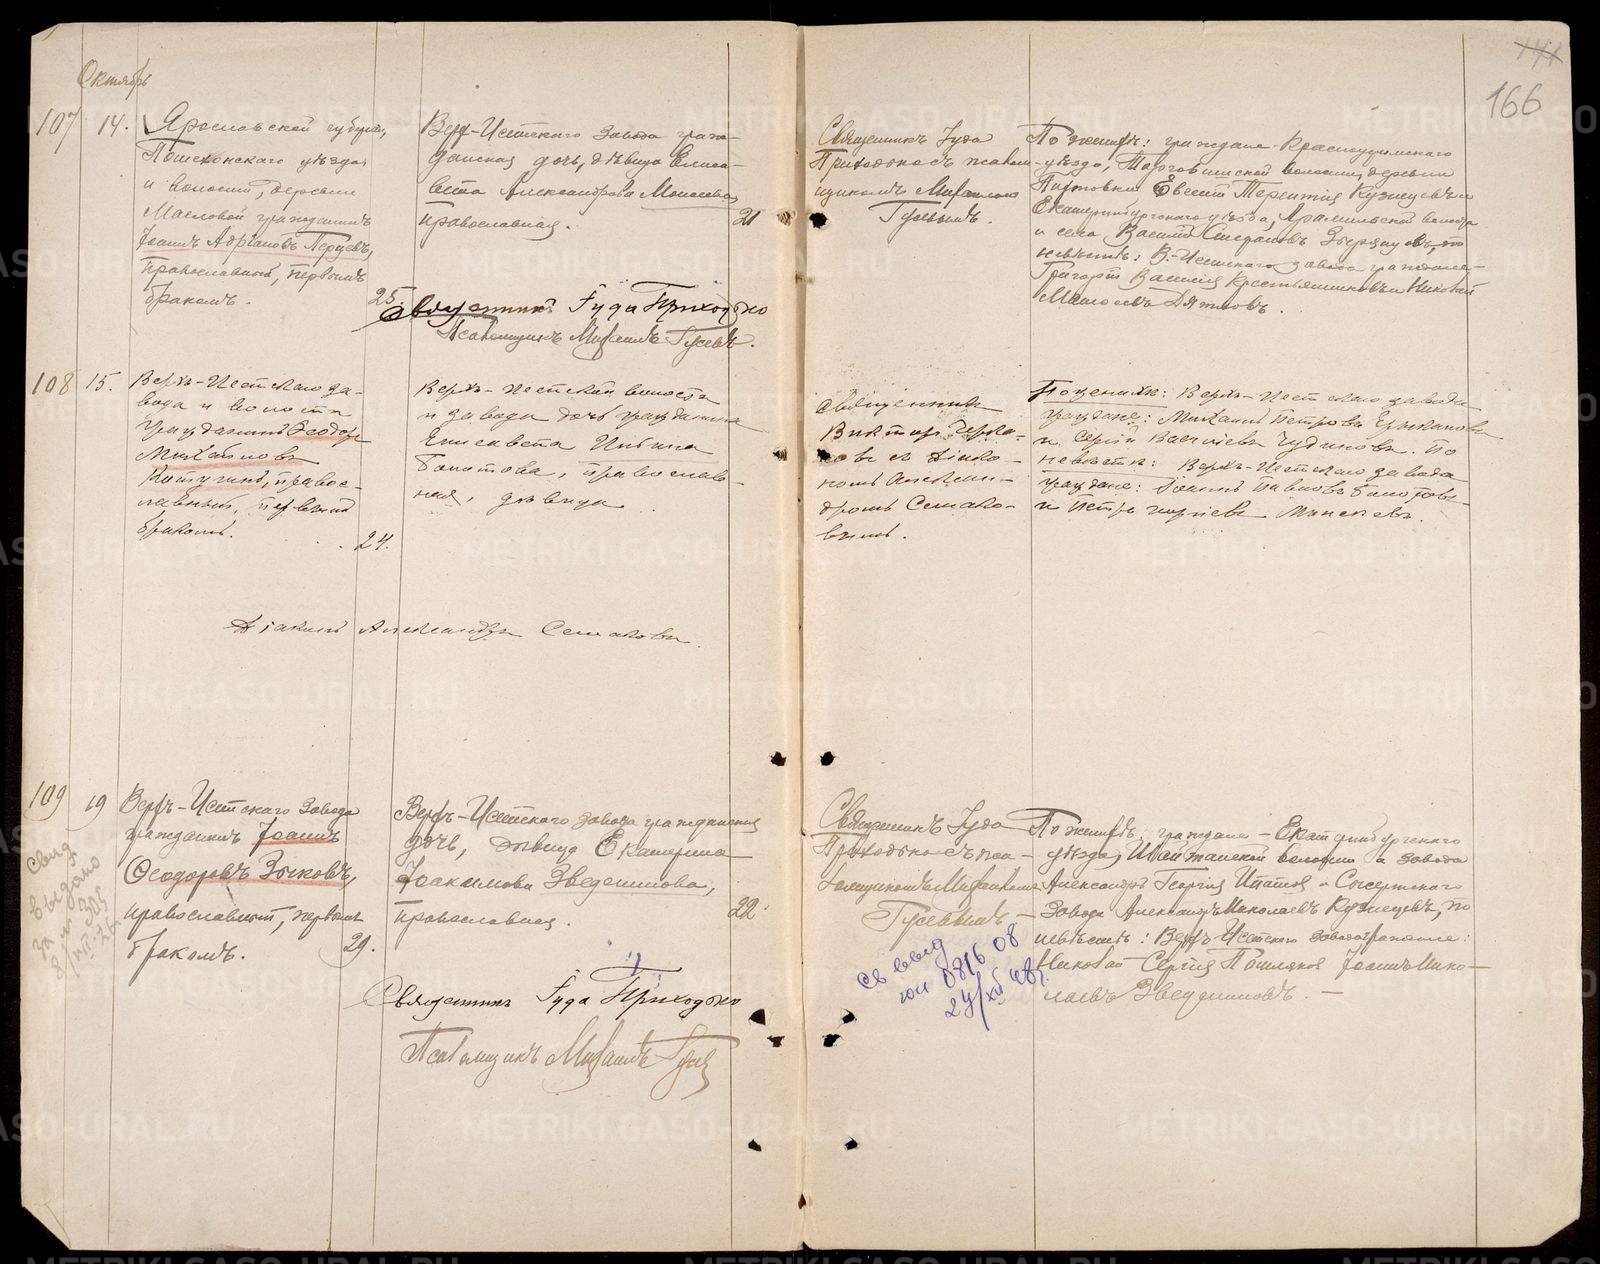 Октябрь
166
107 14. Ярославской губерн.,
Пошехонскаго уѣзда
и волости, деревни
Масловой гражданинъ
Іоаннъ Адріановъ Перцевъ,
православный, первымъ
бракомъ.
25.
Верх-Исетскаго завода граж-
данская дочь, дѣвица Елиса-
вета Александрова Моисеева
православная.
21
Священникъ Іуда
Приходько съ псалом-
щикомъ Михаиломъ
Гусевымъ.
По женихѣ: граждане Красноуфимскаго
уѣзда, Торговишской волости, деревни
Евсевій Терентіев Кузнецовъ и
Екатеринбургскаго уѣзда, Арамильской волости
и села Василій Стефановъ Зырянов, по
невѣстѣ: В.-Исетскаго завода граждане-
Григорій Васильев Крестьянниковъ и Николай
Моисеевъ Дятловъ.
Священникъ Іуда Приходько
Псаломщикъ Михаилъ Гусевъ.
108 15. Верхъ-Исетскаго за-
вода и волости
гражданинъ Ѳеодоръ
Михайловъ
Катугинъ, право-
славный, первымъ
бракомъ.
24.
Верхъ-Исетской волости
и завода дочь гражданина
Елисавета Ивановна
Болотова, православ-
ная, дѣвица
Священникъ
Викторъ Черка-
совъ съ діако-
номъ Алексан-
дромъ Семако-
вымъ.
По женихѣ: Верхъ-Исетскаго завода
граждане: Михаилъ Петровъ
и Сергій Васильевъ Чудиновъ. По
невѣстѣ: Верхъ-Исетскаго завода
граждане: Іоаннъ Павловъ Болотовъ
и Петръ
Діаконъ Александръ Семаковъ.
109 19 Верхъ-Исетскаго завода
гражданинъ Іоаннъ
Ѳеодоровъ Зыковъ,
православный, первымъ
бракомъ.
29.
Свид
выдано
за
№ 305
Верхъ-Исетскаго завода гражданская
дочь, дѣвица Екатерина
Іоакимова Зведенинова,
православная.
22.
Священникъ Іуда
Приходько съ пса-
ломщикомъ Михаиломъ
Гусевымъ -
По женихѣ: граждане - Екатеринбургскаго
уѣзда, Шайтанской волости и завода
Александръ Георгіев Ипатов и Сысертскаго
завода Александръ Николаевъ Кузнецовъ, по
невѣстѣ: Верхъ-Исетскаго завода граждане:
Николай Сергіев Пошляков Іоаннъ Нико-
лаевъ Зведениновъ. -
Св выд
юи 081608
24/XII 48г
Священникъ Іуда Приходько
Псаломщикъ Михаилъ Гусев